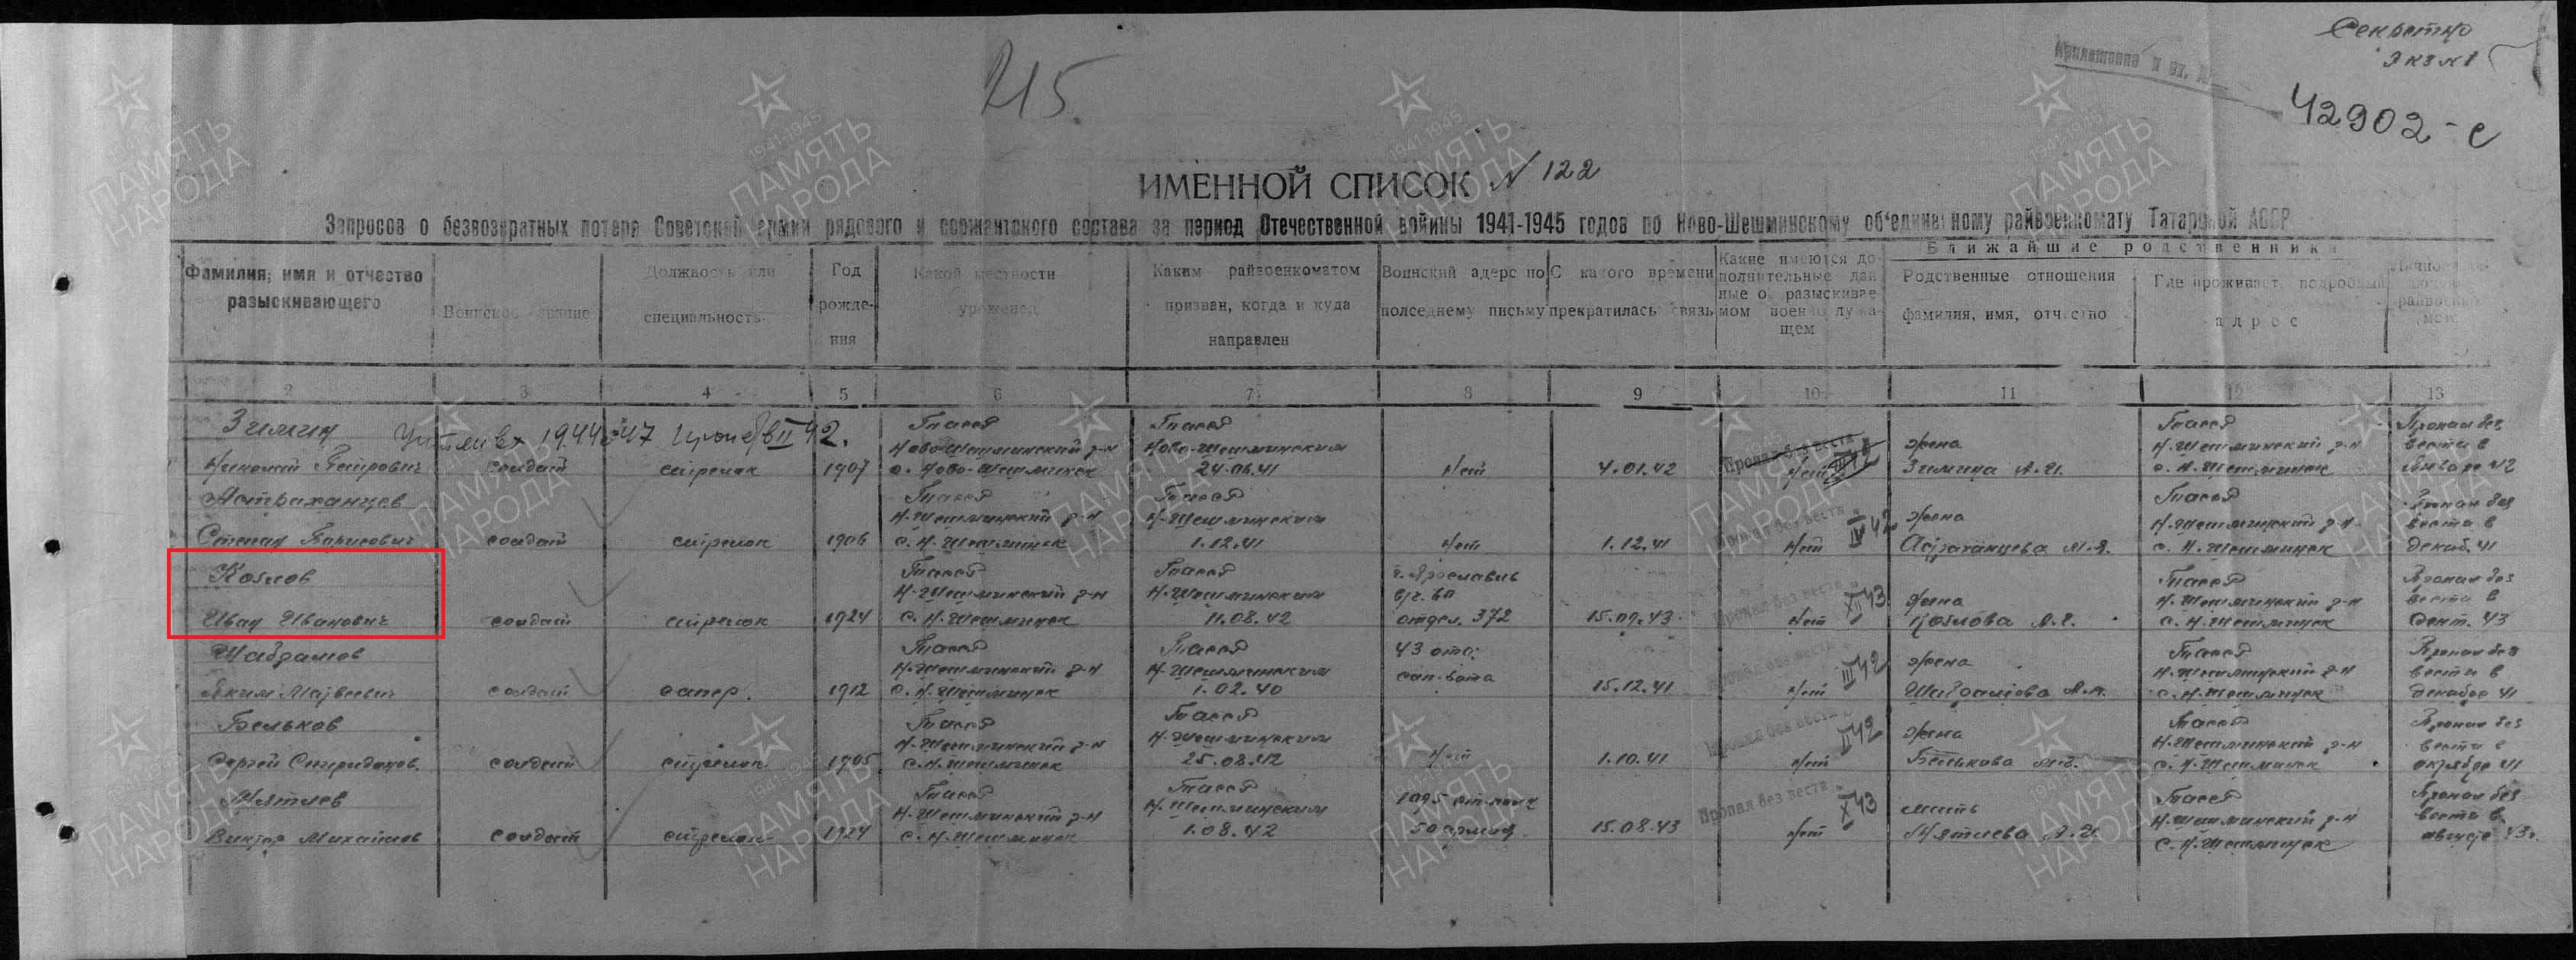 Секретно
Экз №1
Приложение к вх. №
42902-с
215.
ИМЕННОЙ СПИСОК № 122
Запросов о безвозвратных потеря Советской армии рядового и сержантского состава за период Отечественной войны 1941-1945 годов по Ново-Шешминскому об'единенному райвоенкомату Татарской АССР
Фамилия, имя и отчество разыскивающего
Воинское звание
Должность или специальность
Год рождения
Какой местности уроженец
Каким райвоенкоматом призван, когда и куда направлен
Воинский адерс по полседнему письму
С какого времени прекратилась связь
Какие имеются дополнительные данные о разыскиваемом военнослужащем
Ближайшие родственники
Родственные отношения фамилия, имя, отчество
Где проживает, подробный адрес
2 3 4 5 6 7 8 9 10 11 12 13
Зимин
Учтен вх 1944с-47
Петрович солдат стрелок 1907
Тасср Ново-Шешминский р-н с. Ново-Шешминск
Тасср Ново-Шешминским 24.06.41
нет 4.01.42 Пропал без вести нет
жена Зимина А.И.
Тасср Н.Шешминский р-н с. Н.Шешминск
Пропал без вести в январе 42
Астраханцев
Степан Борисович солдат стрелок 1906
Тасср Н.Шешминский р-н с. Н.Шешминск
Тасср Н-Шешминским 1.12.41
нет 1.12.41 Пропал без вести нет IV 42
жена Астраханцева М.Я.
Тасср Н.Шешминский р-н с. Н.Шешминск
Пропал без вести в декаб. 41
Козлов
Иван Иванович солдат стрелок 1924
Тасср Н.Шешминский р-н с. Н.Шешминск
Тасср Н.Шешминским 11.08.42
г. Ярославль в/ч. 60 отдел. 372
15.09.43 Пропал без вести нет XII 43
жена Козлова А.Е.
Тасср Н.Шешминский р-н с. Н.Шешминск
Пропал без вести в сент. 43
Шабдалов
Аким Матвеевич солдат сапер. 1912
Тасср Н.Шешминский р-н с. Н.Шешминск
Тасср Н.Шешминским 1.02.40
43 отд. сап. бата
15.12.41 Пропал без вести нет III 42
жена Шабдалова А.А.
Тасср Н.Шешминский р-н с. Н.Шешминск
Пропал без вести в декабре 41
Бельков
Сергей Спиридонов. солдат стрелок 1905
Тасср Н.Шешминский р-н с. Н.Шешминск
Тасср Н.Шешминским 25.08.42
нет 1.10.41 Пропал без вести нет II 42
жена Белькова
Тасср Н.Шешминский р-н с. Н.Шешминск
Пропал без вести в октябре 41
Мятлев
Виктор Михайлов солдат стрелок 1924
Тасср Н.Шешминский р-н с. Н.Шешминск
Тасср Н.Шешминским 1.08.42
1095 50 армия
15.08.43 Пропал без вести нет X 43
мать Мятлева А.И.
Тасср Н.Шешминский р-н с. Н.Шешминск
Пропал без вести в августе 43г.
1941-1945
ПАМЯТЬ
НАРОДА